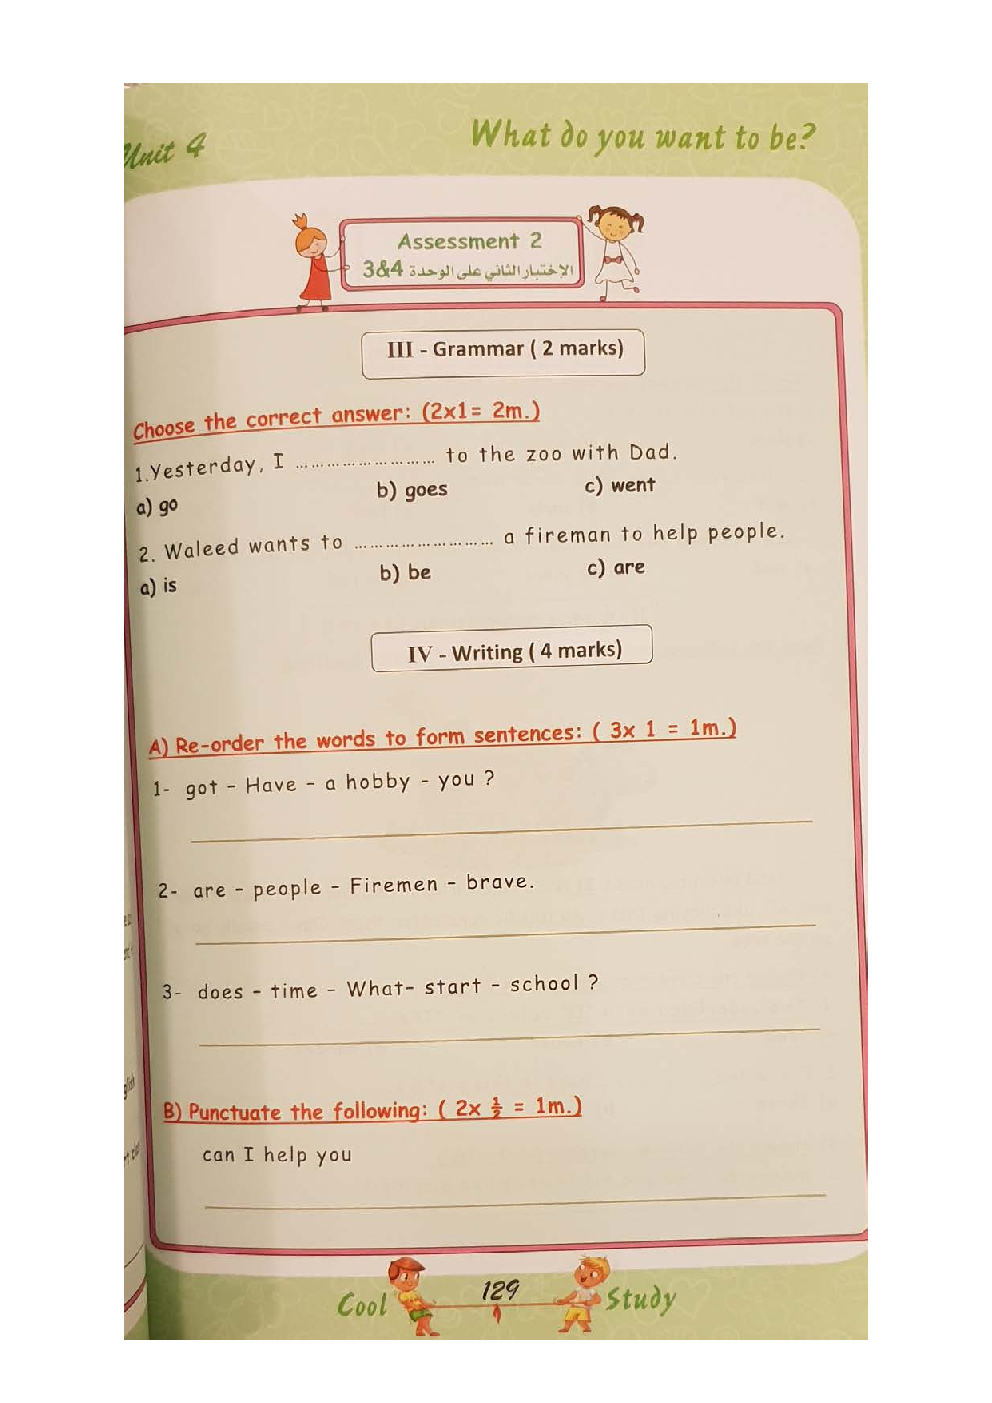 Unit 4
What do you want to be?
Assessment 2
الاختبار الثاني على الوحدة 3&4
III - Grammar ( 2 marks)
Choose the correct answer: (2x1= 2m.)
1.Yesterday, I ........................... to the zoo with Dad.
a) go b) goes c) went
2. Waleed wants to ........................... a fireman to help people.
a) is b) be c) are
IV - Writing ( 4 marks)
A) Re-order the words to form sentences: ( 3x 1 = 1m.)
1- got - Have - a hobby - you ?
2- are - people - Firemen - brave.
3- does - time - What- start - school ?
B) Punctuate the following: ( 2x ½ = 1m.)
can I help you
Cool 129 Study